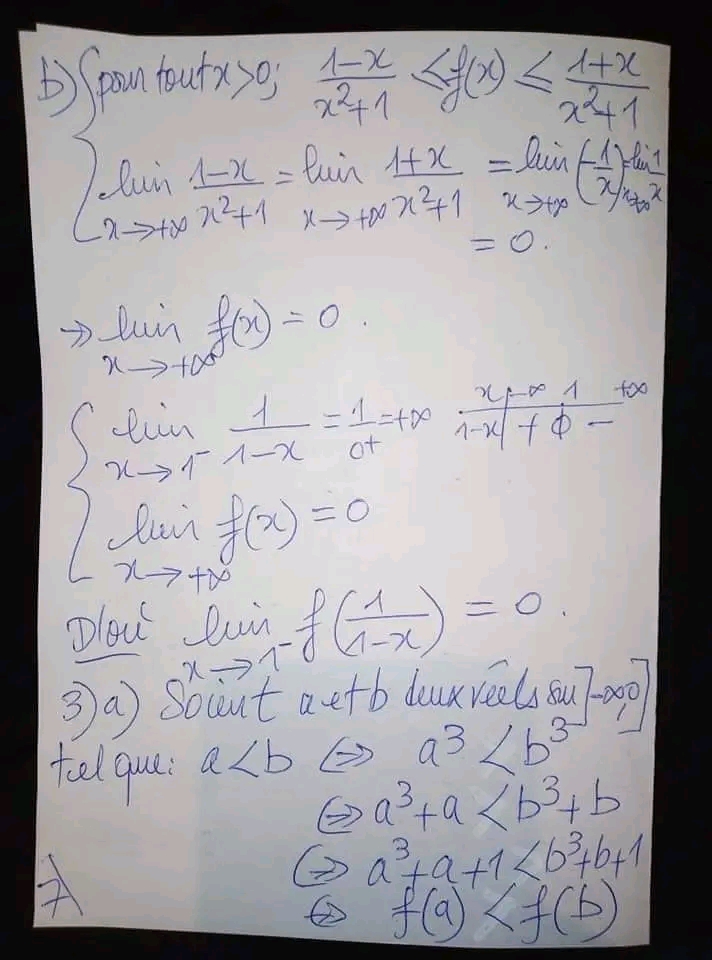 b) { pour tout x > 0; (1-x)/(x²+1) ≤ f(x) ≤ (1+x)/(x²+1)
lim x→+∞ (1-x)/(x²+1) = lim x→+∞ (1+x)/(x²+1) = lim x→+∞ (-1/x) = lim x→+∞ 1/x
= 0.
→ lim x→+∞ f(x) = 0.
{ lim x→1⁻ 1/(1-x) = 1/0⁺ = +∞
x | -∞ 1 +∞
1-x | + 0 -
lim x→+∞ f(x) = 0
D'où lim x→1⁻ f(1/(1-x)) = 0.
3) a) Soient a et b deux réels sur ]-∞,0]
tel que: a < b ⇔ a³ < b³
⇔ a³+a < b³+b
⇔ a³+a+1 < b³+b+1
⇔ f(a) < f(b)